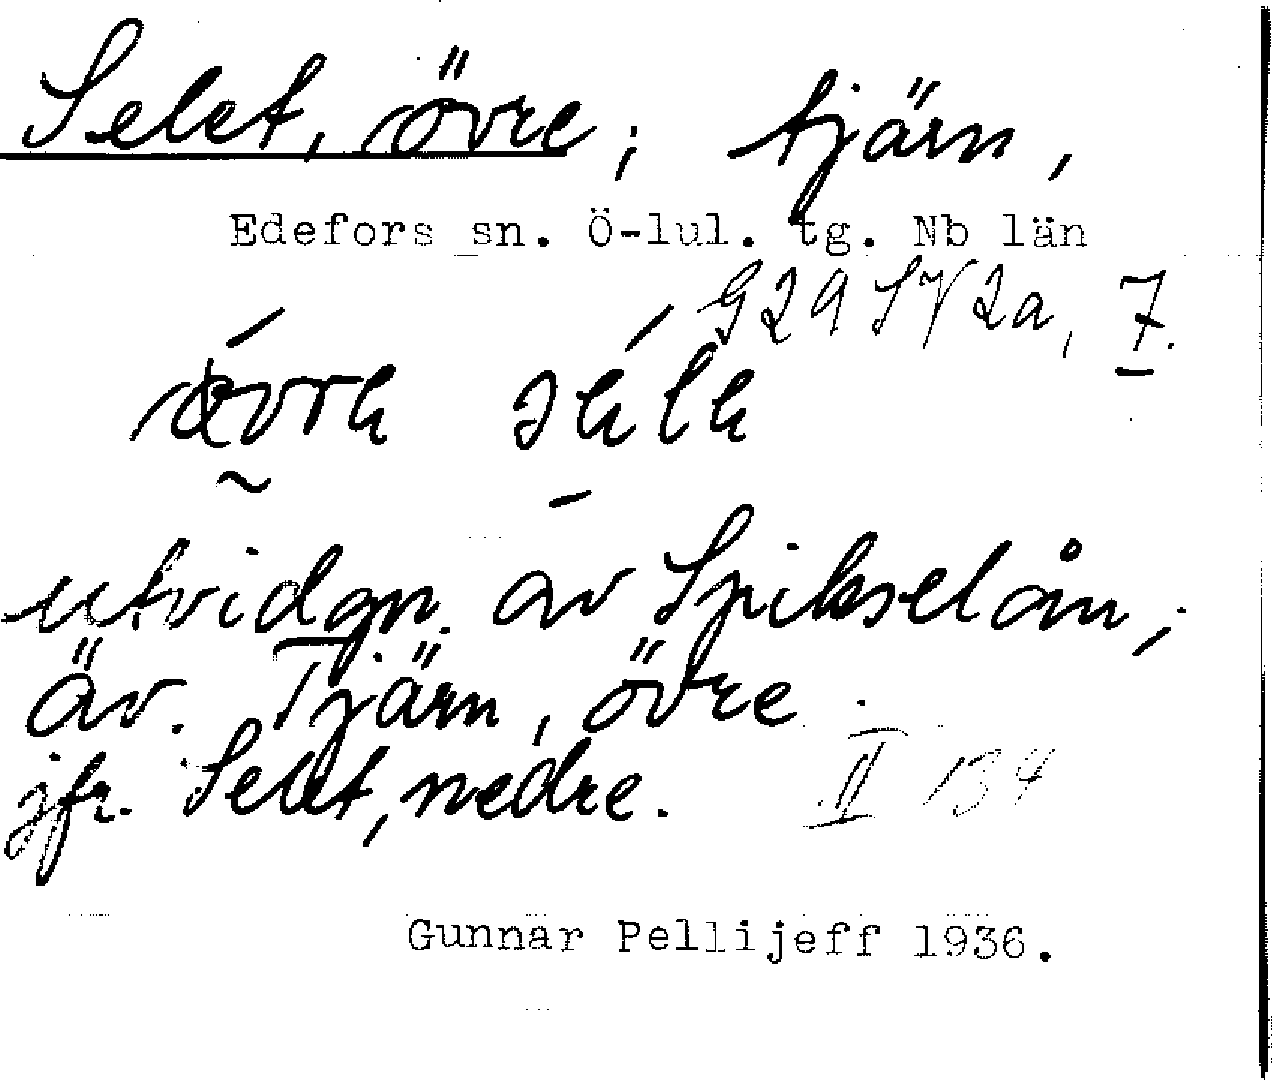 Selet, övre; tjärn,
Edefors sn. Ö-lul. tg. Nb län
G29 SV 2a, 7.
utvidgn. av Spikselån;
äv. Tjärn, övre.
jfr. Selet, nedre. II 134
Gunnar Pellijeff 1936.